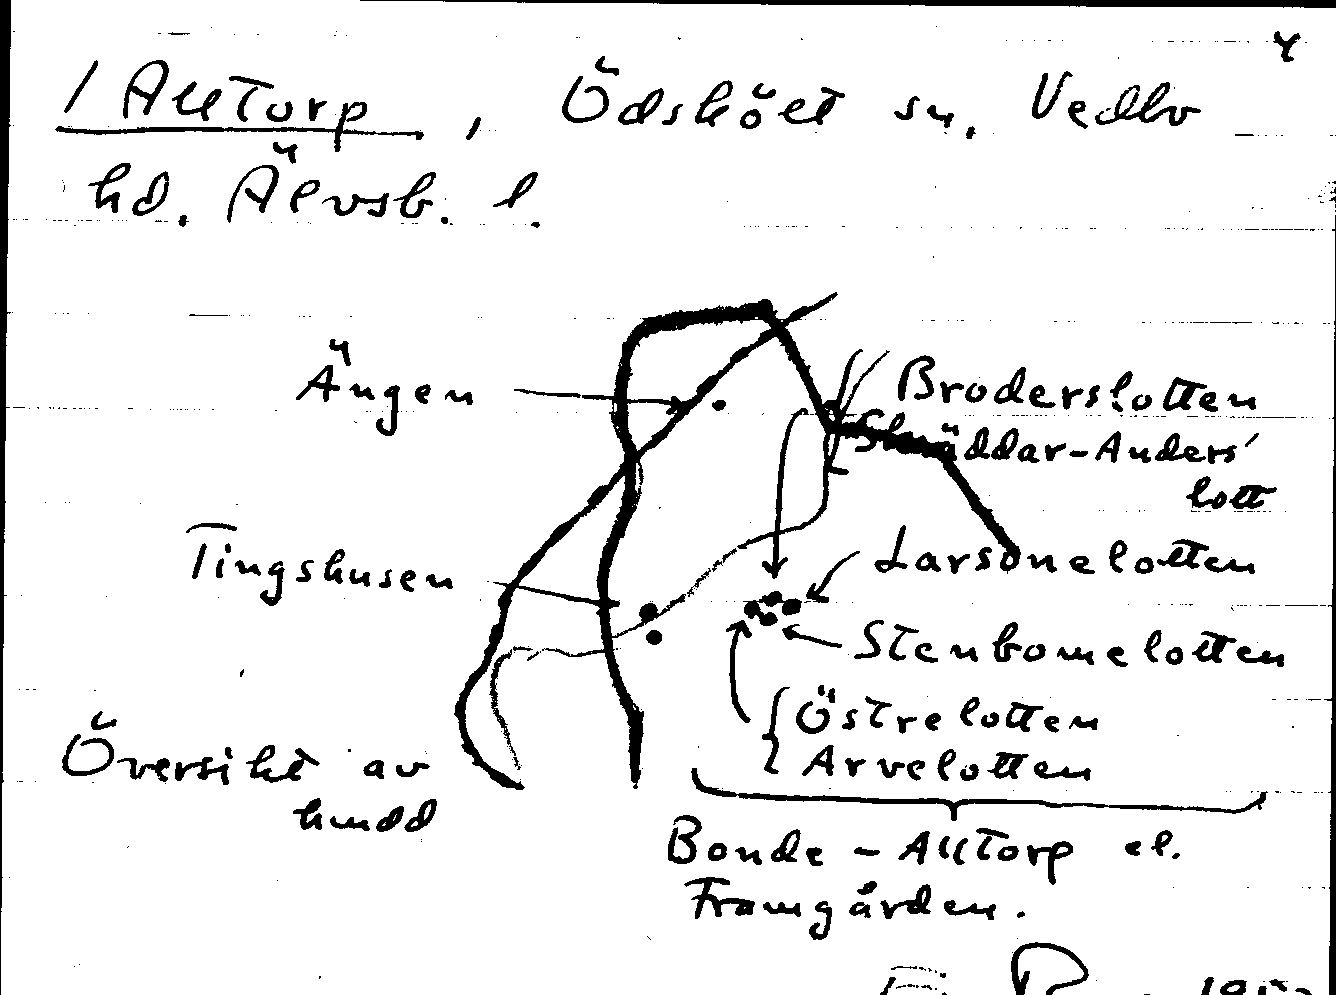 4
1 Alltorp, Ödskölt sn, Vedbo
hd. Älvsb. l.
Ängen
Broderslotten
Skräddar-Anders'
lott
Tingshusen
Larsonelotten
Stenbomelotten
Östrelotten
Arvelotten
Översikt av
Bonde-Alltorp el.
Framgården.